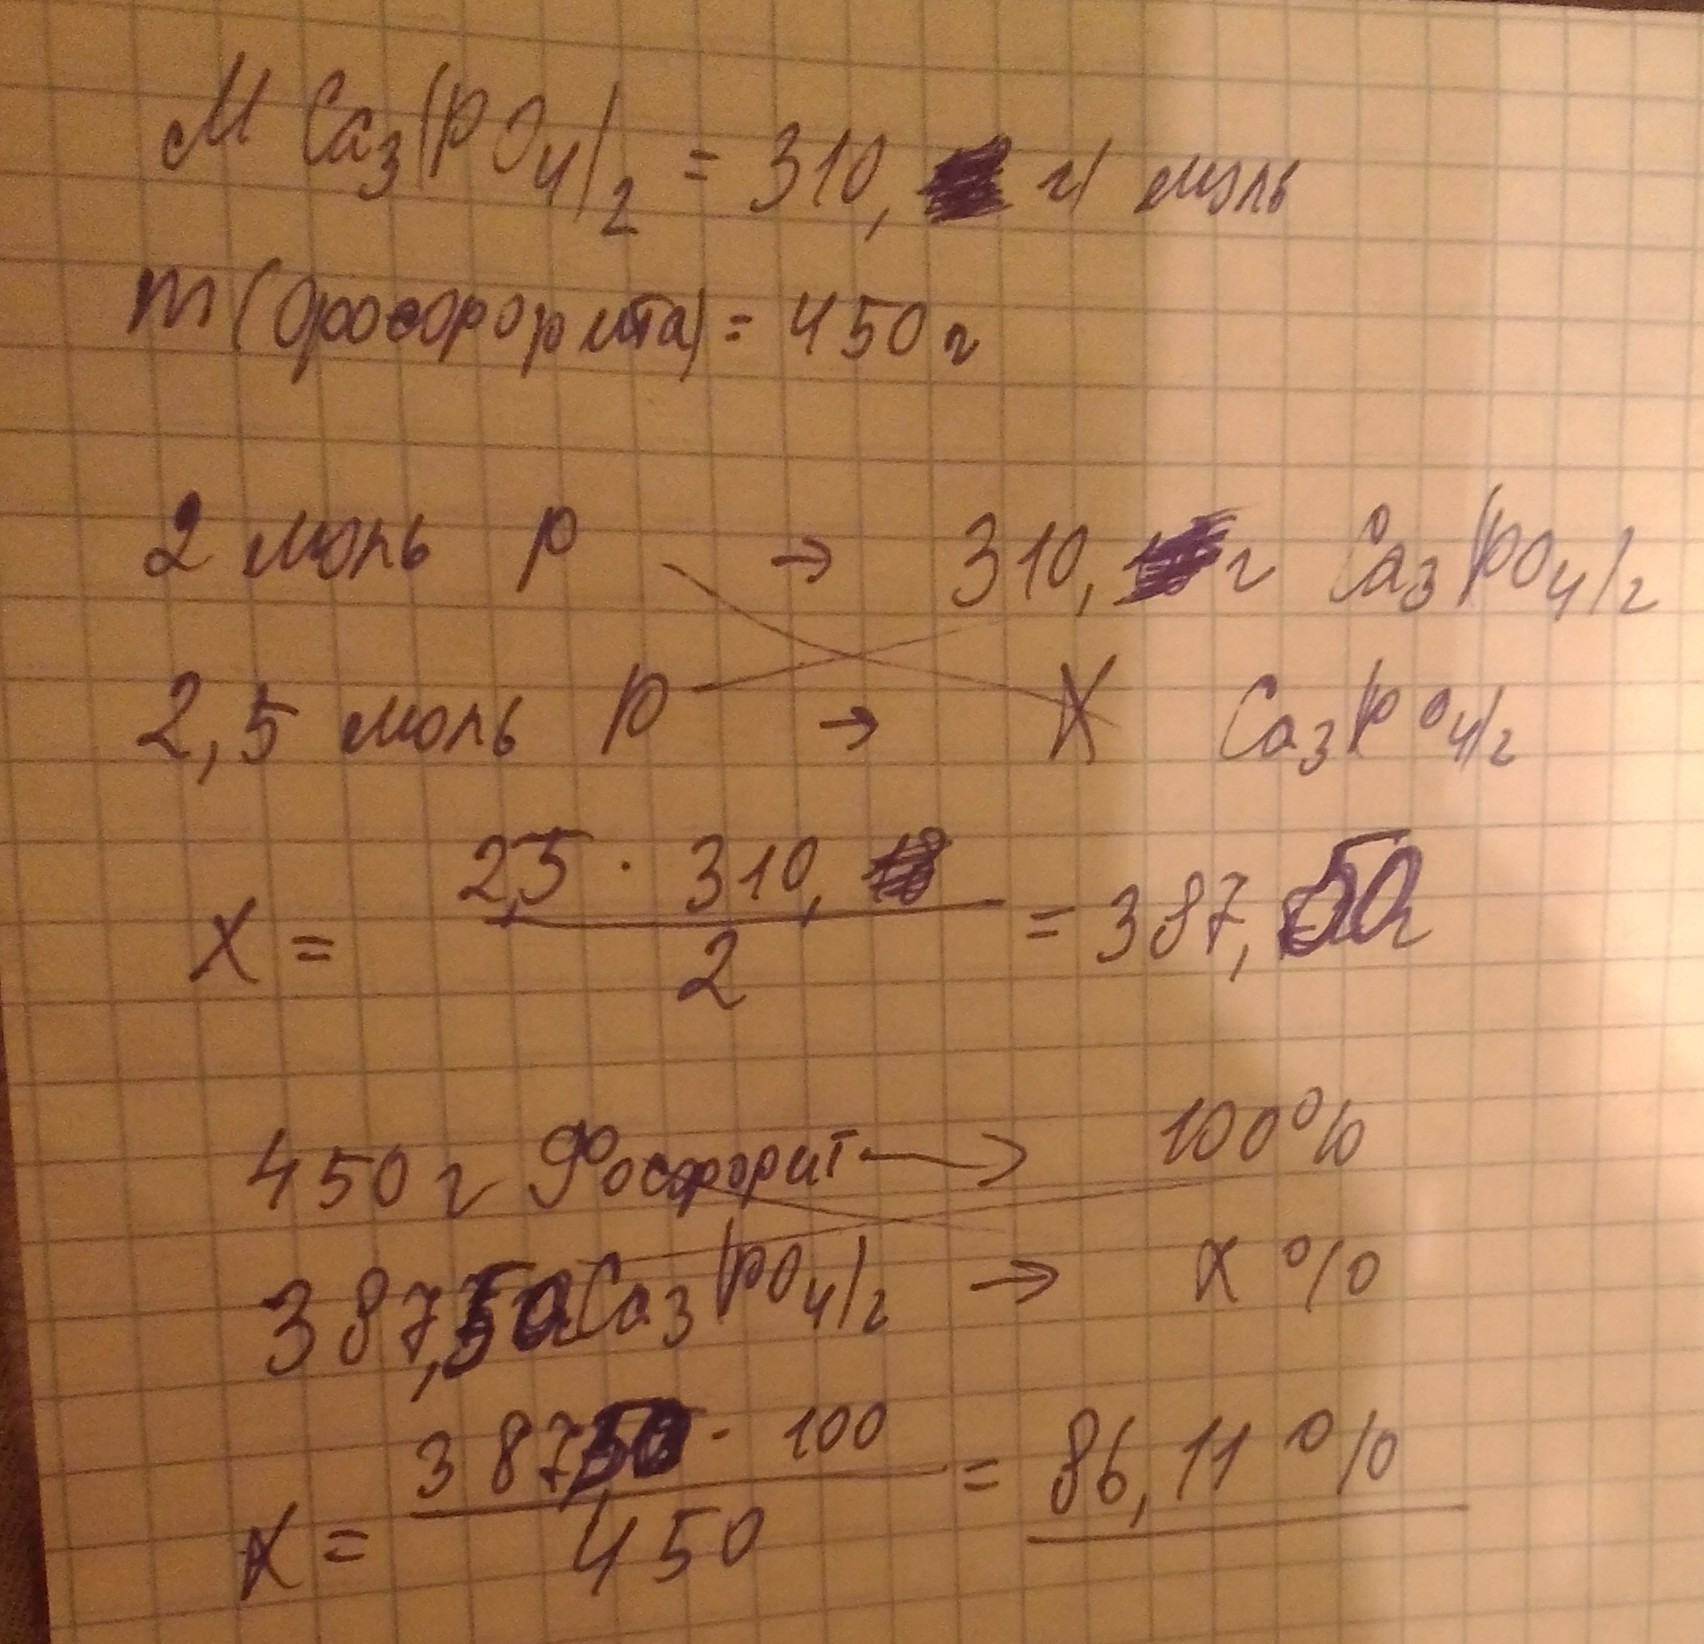 M Ca3(PO4)2 = 310, г/моль
m(фосфорита) = 450 г
2 моль P → 310, г Ca3(PO4)2
2,5 моль P → X Ca3(PO4)2
X = 2,5 · 310, / 2 = 387,50г
450 г Фосфорит → 100%
387,50 Ca3(PO4)2 → X %
X = 387,50 · 100 / 450 = 86,11 %